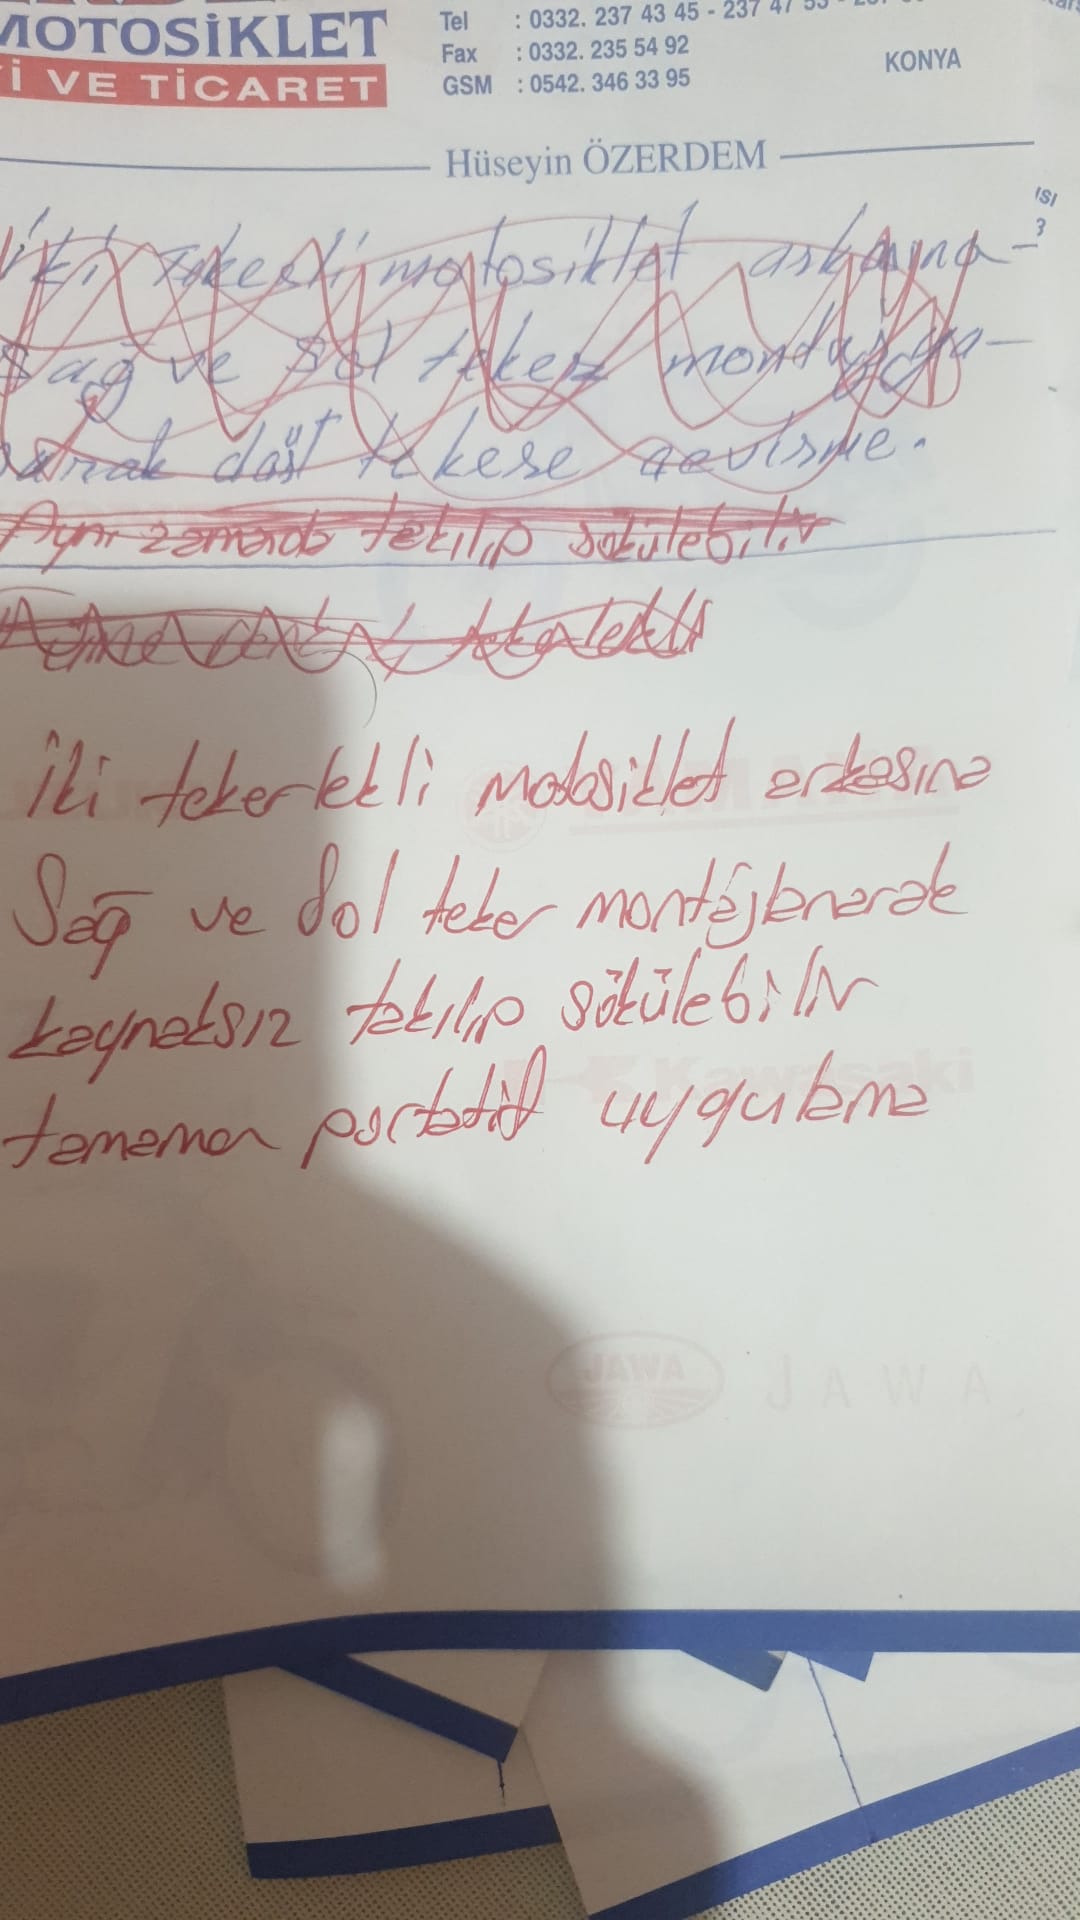 MOTOSİKLET
İ VE TİCARET
Tel : 0332. 237 43 45 - 237 47 53 -
Fax : 0332. 235 54 92
GSM : 0542. 346 33 95
KONYA
Hüseyin ÖZERDEM
ISI
3
iki tekerli motosiklet arkayna-
sağ ve sol teker montaj ya-
parak dört tekere çevirme.
Aynı zamanda takılıp sökülebilir
tekerlekli
İki tekerlekli motosiklet arkasına
Sağ ve Sol teker montajlanarak
kaynaksız takılıp sökülebilir
tamamen portatif uygulama
Kawasaki
JAWA
JAWA